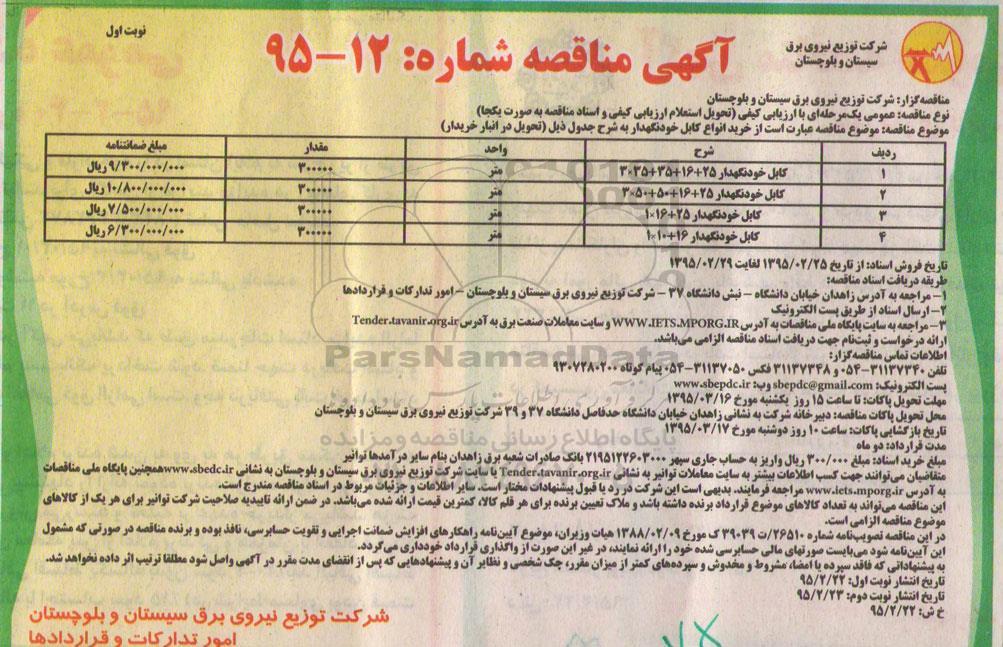 نوبت اول
شرکت توزیع نیروی برق
سیستان و بلوچستان
آگهی مناقصه شماره: ۱۲-۹۵
مناقصه‌گزار: شرکت توزیع نیروی برق سیستان و بلوچستان
نوع مناقصه: عمومی یک‌مرحله‌ای با ارزیابی کیفی (تحویل استعلام ارزیابی کیفی و اسناد مناقصه به صورت یکجا)
موضوع مناقصه: موضوع مناقصه عبارت است از خرید انواع کابل خودنگهدار به شرح جدول ذیل (تحویل در انبار خریدار)
ردیف شرح واحد مقدار مبلغ ضمانتنامه
۱ کابل خودنگهدار ۲۵+۱۶+۳۵+۳۵×۳ متر ۳۰۰۰۰۰ ۹/۳۰۰/۰۰۰/۰۰۰ ریال
۲ کابل خودنگهدار ۲۵+۱۶+۵۰+۵۰×۳ متر ۳۰۰۰۰۰ ۱۰/۸۰۰/۰۰۰/۰۰۰ ریال
۳ کابل خودنگهدار ۲۵+۱۶×۱ متر ۳۰۰۰۰۰ ۷/۵۰۰/۰۰۰/۰۰۰ ریال
۴ کابل خودنگهدار ۱۶+۱۰×۱ متر ۳۰۰۰۰۰ ۶/۳۰۰/۰۰۰/۰۰۰ ریال
تاریخ فروش اسناد: از تاریخ ۱۳۹۵/۰۲/۲۵ لغایت ۱۳۹۵/۰۲/۲۹
طریقه دریافت اسناد مناقصه:
۱- مراجعه به آدرس زاهدان خیابان دانشگاه - نبش دانشگاه ۳۷ - شرکت توزیع نیروی برق سیستان و بلوچستان - امور تدارکات و قراردادها
۲- ارسال اسناد از طریق پست الکترونیک
۳- مراجعه به سایت پایگاه ملی مناقصات به آدرس WWW.IETS.MPORG.IR و سایت معاملات صنعت برق به آدرس Tender.tavanir.org.ir
ارائه درخواست و ثبت‌نام جهت دریافت اسناد مناقصه الزامی می‌باشد.
ParsNamadData
اطلاعات تماس مناقصه‌گزار:
تلفن ۳۱۱۳۷۳۴۰-۰۵۴ و ۳۱۱۳۷۳۴۸ فکس ۳۱۱۳۷۰۵۰-۰۵۴ پیام کوتاه ۹۳۰۷۲۸۰۲۰۰
پست الکترونیک: sbepdc@gmail.com وب: www.sbepdc.ir
مهلت تحویل پاکات: تا ساعت ۱۵ روز یکشنبه مورخ ۱۳۹۵/۰۳/۱۶
محل تحویل پاکات مناقصه: دبیرخانه شرکت به نشانی زاهدان خیابان دانشگاه حدفاصل دانشگاه ۳۷ و ۳۹ شرکت توزیع نیروی برق سیستان و بلوچستان
تاریخ بازگشایی پاکات: ساعت ۱۰ روز دوشنبه مورخ ۱۳۹۵/۰۳/۱۷
پایگاه اطلاع رسانی مناقصه و مزایده
مدت قرارداد: دو ماه
مبلغ خرید اسناد: مبلغ ۳۰۰/۰۰۰ ریال واریز به حساب جاری سپهر ۲۱۹۵۱۲۲۶۰۳۰۰۰ بانک صادرات شعبه برق زاهدان بنام سایر درآمدها توانیر
متقاضیان می‌توانند جهت کسب اطلاعات بیشتر به سایت معاملات توانیر به نشانی Tender.tavanir.org.ir یا سایت شرکت توزیع نیروی برق سیستان و بلوچستان به نشانی www.sbedc.ir همچنین پایگاه ملی مناقصات
به آدرس www.iets.mporg.ir مراجعه فرمایند. بدیهی است این شرکت در رد یا قبول پیشنهادات مختار است. سایر اطلاعات و جزئیات مربوط در اسناد مناقصه مندرج است.
این مناقصه می‌تواند به تعداد کالاهای موضوع قرارداد برنده داشته باشد و ملاک تعیین برنده برای هر قلم کالا، کمترین قیمت ارائه شده می‌باشد. در ضمن ارائه تاییدیه صلاحیت شرکت توانیر برای هر یک از کالاهای
موضوع مناقصه الزامی است.
در این مناقصه تصویب‌نامه شماره ۲۶۵۱۰/ت ۳۹۰۳۹ ک مورخ ۱۳۸۸/۰۲/۰۹ هیات وزیران، موضوع آیین‌نامه راهکارهای افزایش ضمانت اجرایی و تقویت حسابرسی، نافذ بوده و برنده مناقصه در صورتی که مشمول
این آیین‌نامه شود می‌بایست صورتهای مالی حسابرسی شده خود را ارائه نمایند، در غیر این صورت از واگذاری قرارداد خودداری می‌گردد.
به پیشنهاداتی که فاقد سپرده یا امضا، مشروط و مخدوش و سپرده‌های کمتر از میزان مقرر، چک شخصی و نظایر آن و پیشنهادهایی که پس از انقضای مدت مقرر در آگهی واصل شود مطلقا ترتیب اثر داده نخواهد شد.
تاریخ انتشار نوبت اول: ۹۵/۲/۲۲
تاریخ انتشار نوبت دوم: ۹۵/۲/۲۳
خ ش: ۹۵/۲/۲۲
شرکت توزیع نیروی برق سیستان و بلوچستان
امور تدارکات و قراردادها